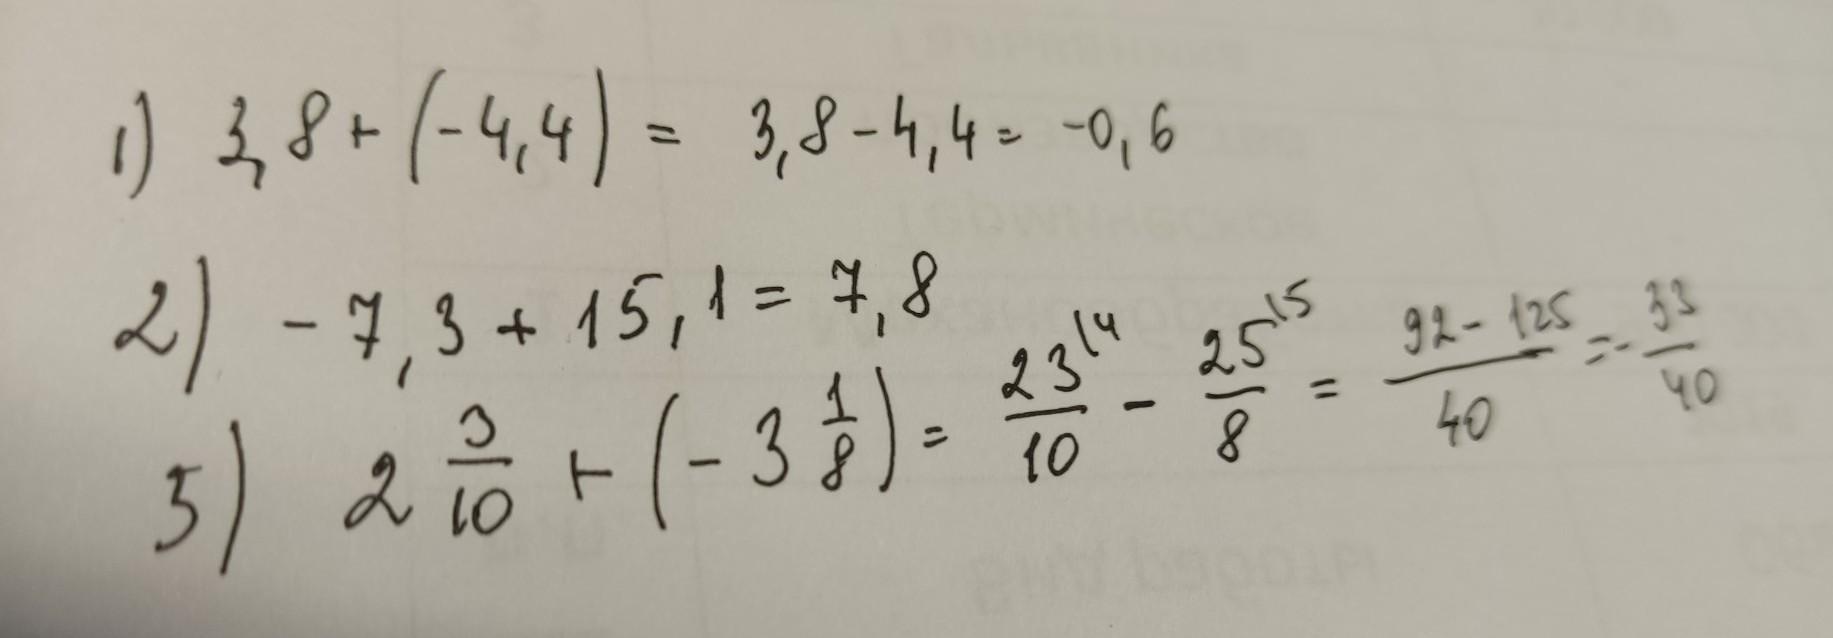 1) 3,8 + (-4,4) = 3,8 - 4,4 = -0,6
2) - 7,3 + 15,1 = 7,8
5) 2 3/10 + (- 3 1/8) = 23\4/10 - 25\5/8 = 92 - 125/40 = - 33/40